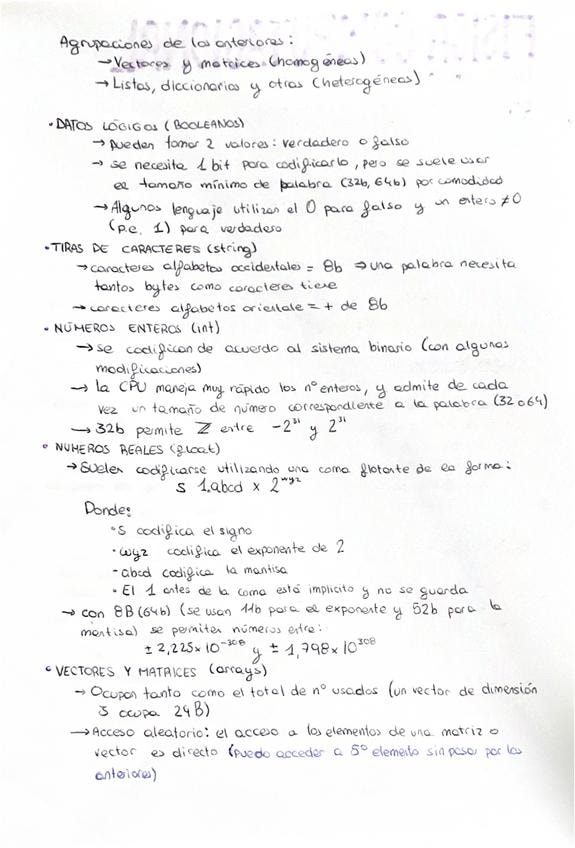 Agrupaciones de los anteriores:
→ Vectores y matrices (homogéneas)
→ Listas, diccionarios y otras (heterogéneas)
• DATOS LÓGICOS (BOOLEANOS)
→ pueden tomar 2 valores: verdadero o falso
→ se necesita 1 bit para codificarlo, pero se suele usar
el tamaño mínimo de palabra (32b, 64b) por comodidad
→ Algunos lenguaje utilizan el 0 para falso y un entero ≠0
(p.e. 1) para verdadero
• TIRAS DE CARACTERES (string)
→ caracteres alfabetos occidentales = 8b ⇒ una palabra necesita
tantos bytes como caracteres tiene
→ caracteres alfabetos orientale = + de 8b
• NÚMEROS ENTEROS (int)
→ se codifican de acuerdo al sistema binario (con algunas
modificaciones)
→ la CPU maneja muy rápido los nº enteros, y admite de cada
vez un tamaño de número correspondiente a la palabra (32 o 64)
→ 32b permite ℤ entre -2³¹ y 2³¹
• NUMEROS REALES (float)
→ Suelen codificarse utilizando una coma flotante de la forma:
S 1.abcd × 2ʷʸᶻ
Donde:
• S codifica el signo
• wyz codifica el exponente de 2
- abcd codifica la mantisa
• El 1 antes de la coma está implícito y no se guarda
→ con 8B (64b) (se usan 11b para el exponente y 52b para la
mantisa) se permiten números entre:
± 2,225×10⁻³⁰⁸ y ± 1,798×10³⁰⁸
• VECTORES Y MATRICES (arrays)
→ Ocupan tanto como el total de nº usados (un vector de dimensión
3 ocupa 24B)
→ Acceso aleatorio: el acceso a los elementos de una matriz o
vector es directo (puedo acceder a 5º elemento sin pasar por los
anteriores)